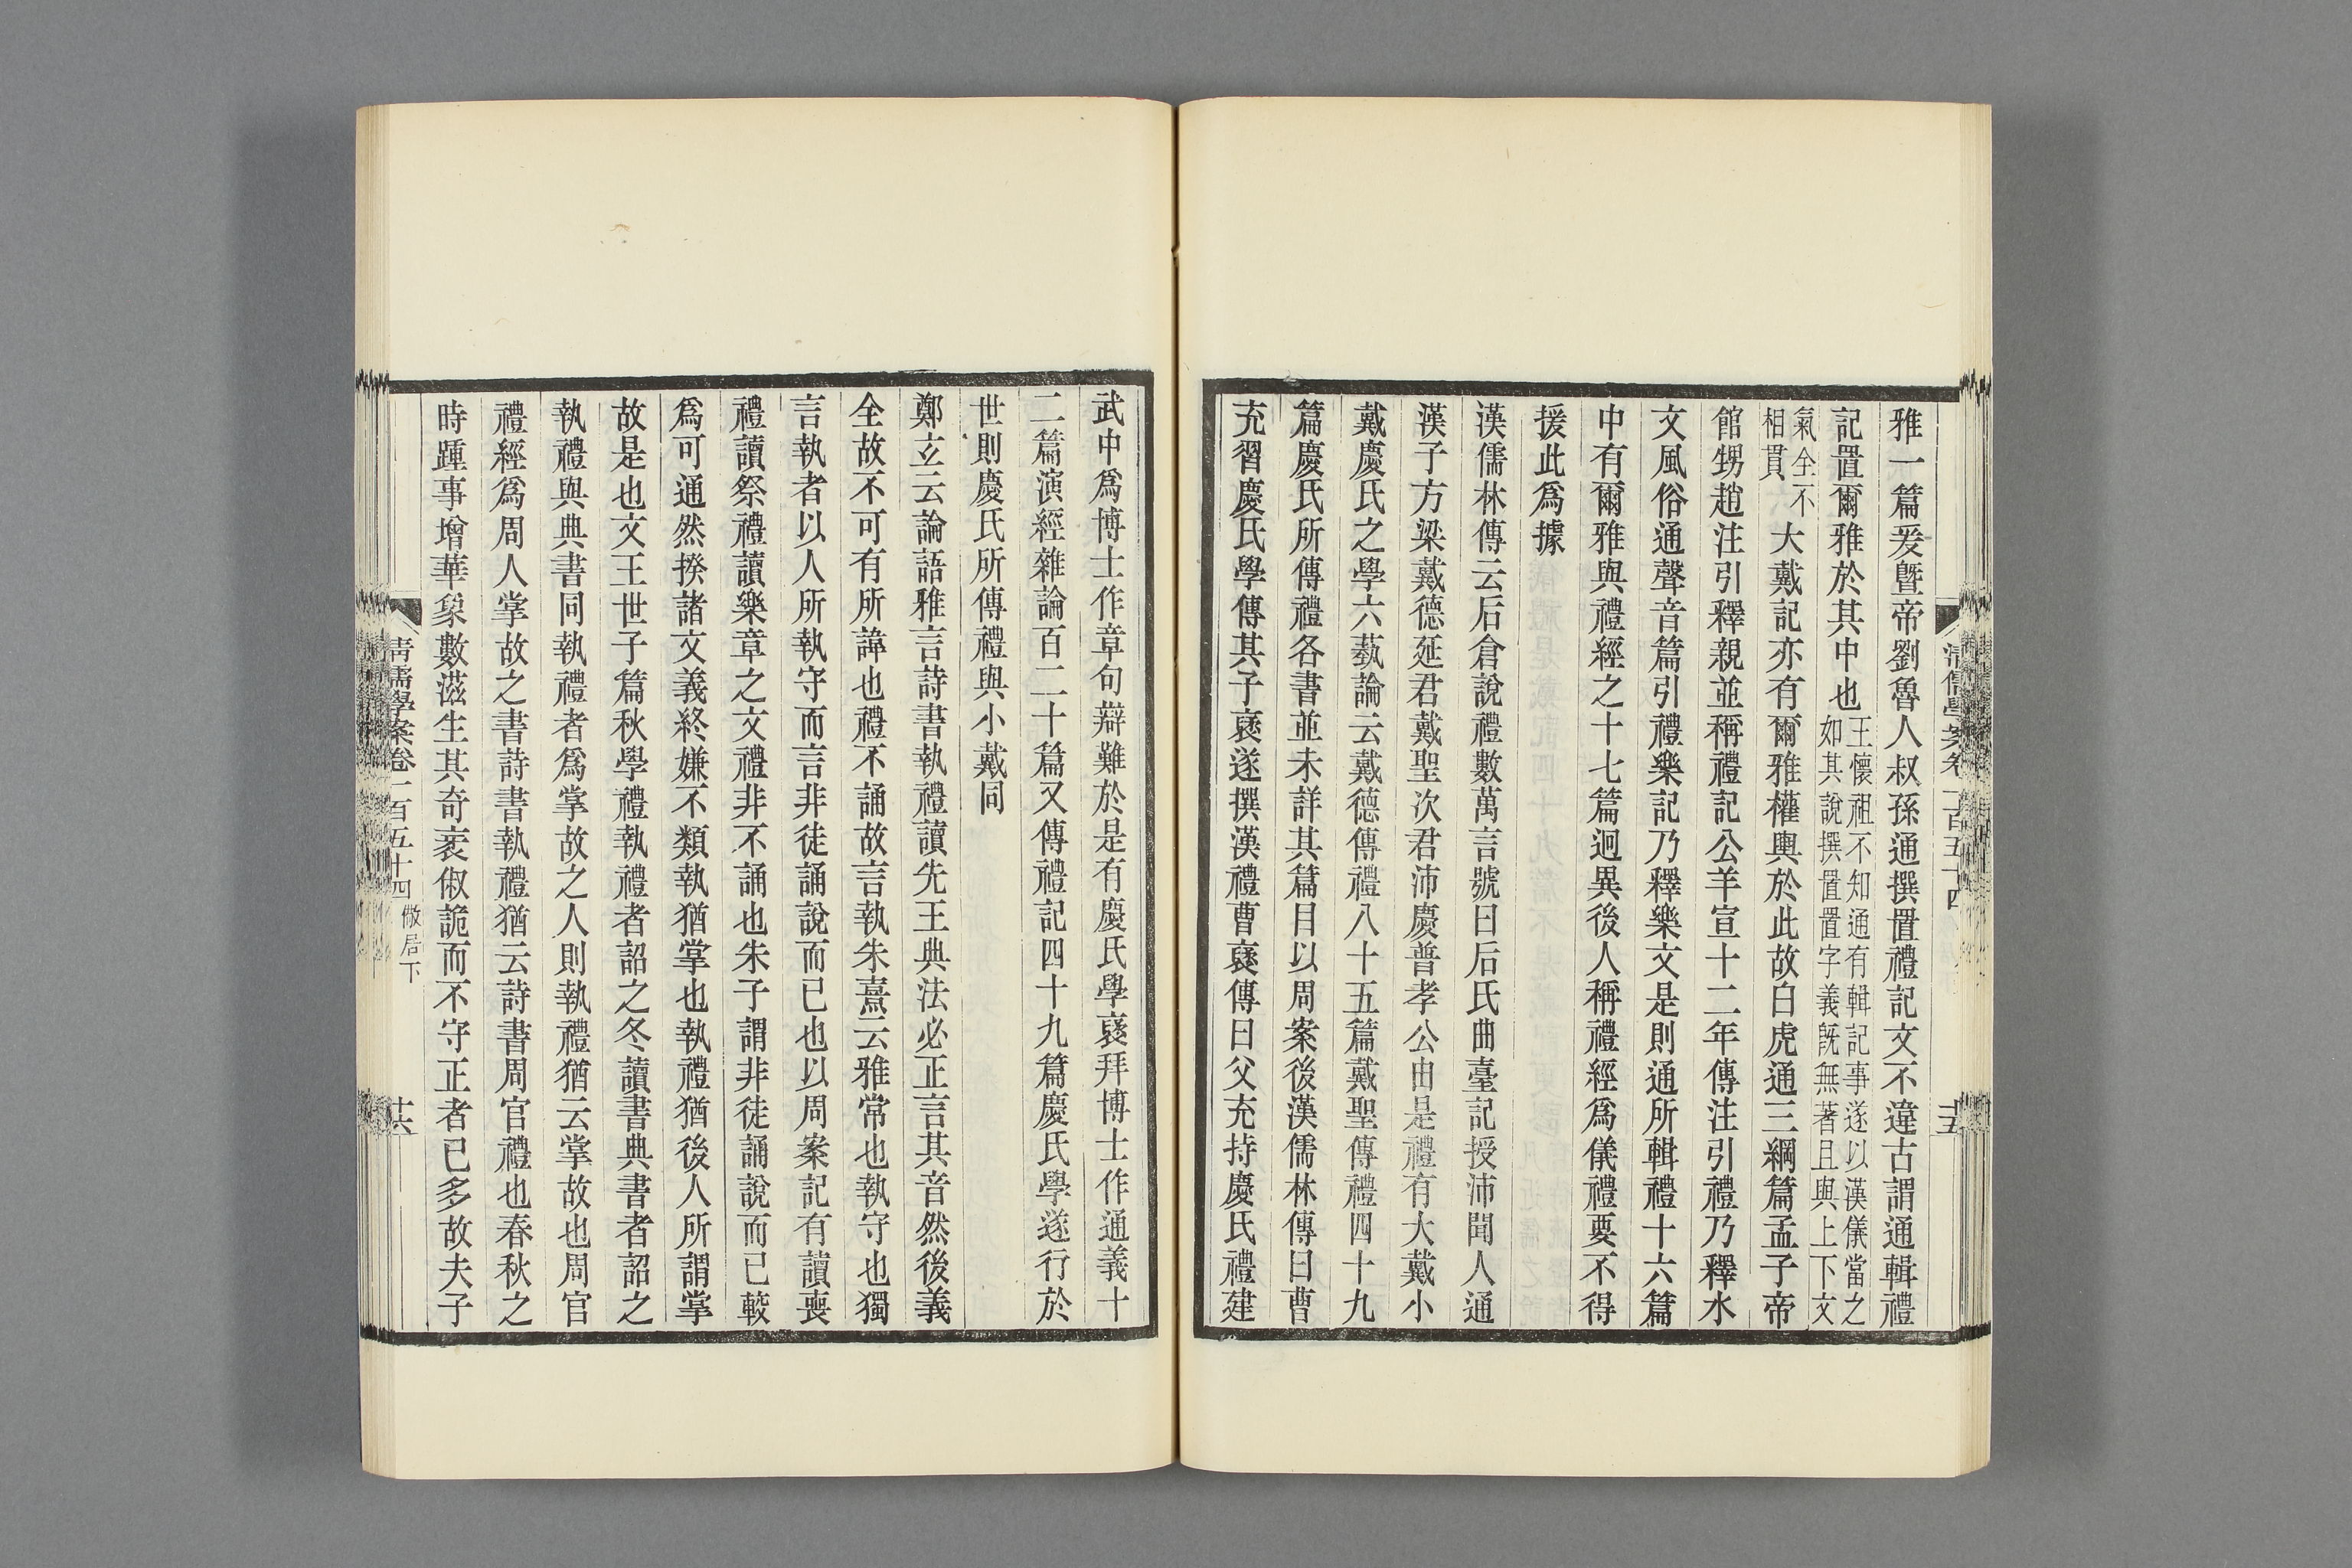 雅一篇爰曁帝劉魯人叔孫通撰置禮記文不違古謂通輯禮
記置爾雅於其中也王懷祖不知通有輯記事遂以漢儀當之
如其說撰置置字義旣無著且與上下文
氣全不
相貫大戴記亦有爾雅權輿於此故白虎通三綱篇孟子帝
館甥趙注引釋親並稱禮記公羊宣十二年傳注引禮乃釋水
文風俗通聲音篇引禮樂記乃釋樂文是則通所輯禮十六篇
中有爾雅與禮經之十七篇迥異後人稱禮經爲儀禮要不得
援此爲據
漢儒林傳云后倉說禮數萬言號曰后氏曲臺記授沛聞人通
漢子方梁戴德延君戴聖次君沛慶普孝公由是禮有大戴小
戴慶氏之學六蓺論云戴德傳禮八十五篇戴聖傳禮四十九
篇慶氏所傳禮各書並未詳其篇目以周案後漢儒林傳曰曹
充習慶氏學傳其子褎遂撰漢禮曹褎傳曰父充持慶氏禮建
清儒學案卷一百五十四
十五
武中爲博士作章句辯難於是有慶氏學褎拜博士作通義十
二篇演經雜論百二十篇又傳禮記四十九篇慶氏學遂行於
世則慶氏所傳禮與小戴同
鄭玄云論語雅言詩書執禮讀先王典法必正言其音然後義
全故不可有所諱也禮不誦故言執朱熹云雅常也執守也獨
言執者以人所執守而言非徒誦說而已也以周案記有讀喪
禮讀祭禮讀樂章之文禮非不誦也朱子謂非徒誦說而已較
爲可通然揆諸文義終嫌不類執猶掌也執禮猶後人所謂掌
故是也文王世子篇秋學禮執禮者詔之冬讀書典書者詔之
執禮與典書同執禮者爲掌故之人則執禮猶云掌故也周官
禮經爲周人掌故之書詩書執禮猶云詩書周官禮也春秋之
時踵事增華象數滋生其奇衺俶詭而不守正者已多故夫子
清儒學案卷一百五十四 儆居下
十六